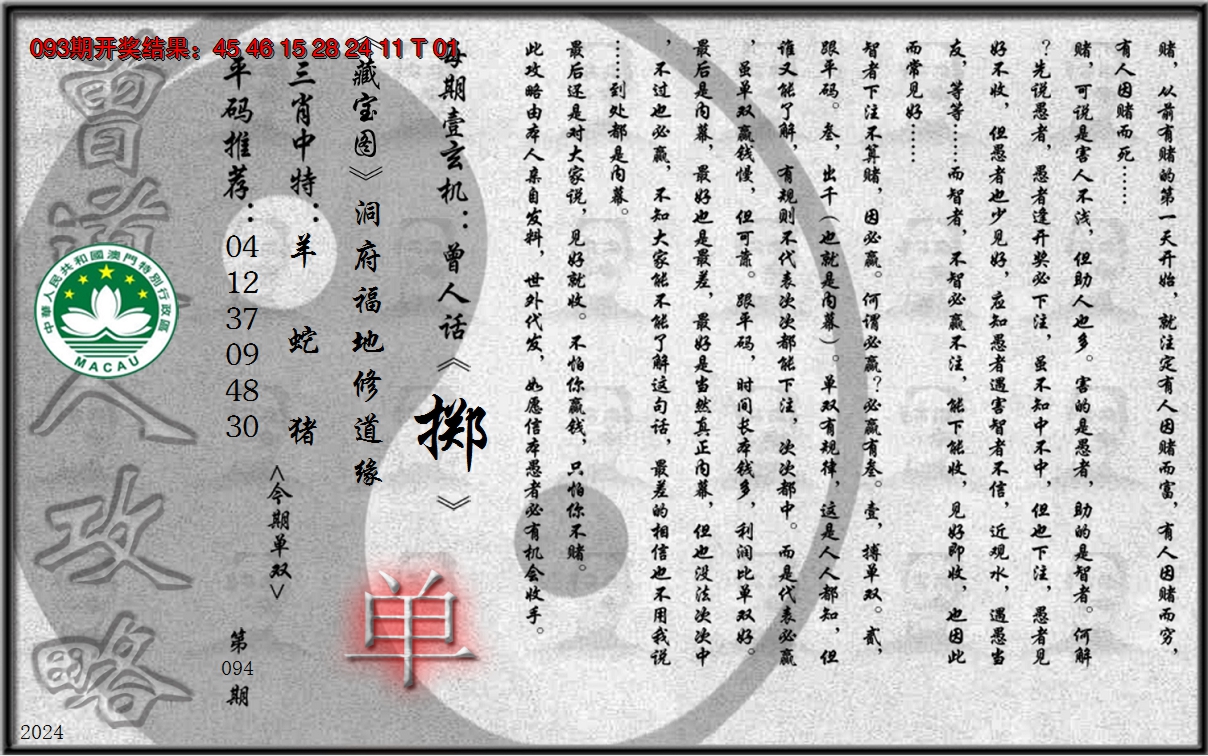 093期开奖结果：45 46 15 28 24 11 T 01
赌，从前有赌的第一天开始，就注定有人因赌而富，有人因赌而穷，
有人因赌而死……
赌，可说是害人不浅，但助人也多。害的是愚者，助的是智者。何解
？先说愚者，愚者逢开奖必下注，虽不知中不中，但也下注，愚者见
好不收，但愚者也少见好，应知愚者遇害智者不信，近观水，遇愚当
友，等等……而智者，不智必赢不注，能下能收，见好即收，也因此
而常见好……
智者下注不算赌，因必赢。何谓必赢？必赢有叁。壹，搏单双。贰，
跟平码。叁，出千（也就是内幕）。单双有规律，这是人人都知，但
谁又能了解，有规则不代表次次都能下注，次次都中。而是代表必赢
，虽单双赢钱慢，但可靠。跟平码，时间长本钱多，利润比单双好。
最后是内幕，最好也是最差，最好是当然真正内幕，但也没法次次中
，不过也必赢，不知大家能不能了解这句话，最差的相信也不用我说
……到处都是内幕。
最后还是对大家说，见好就收。不怕你赢钱，只怕你不赌。
此攻略由本人亲自发料，世外代发，如愿信本愚者必有机会收手。
每期壹玄机：曾人话《掷》
《藏宝图》洞府福地修道缘
三肖中特：羊 蛇 猪
<今期单双>
单
平码推荐：04 12 37 09 48 30
第094期
曾道人攻略
中華人民共和國澳門特別行政區
MACAU
2024